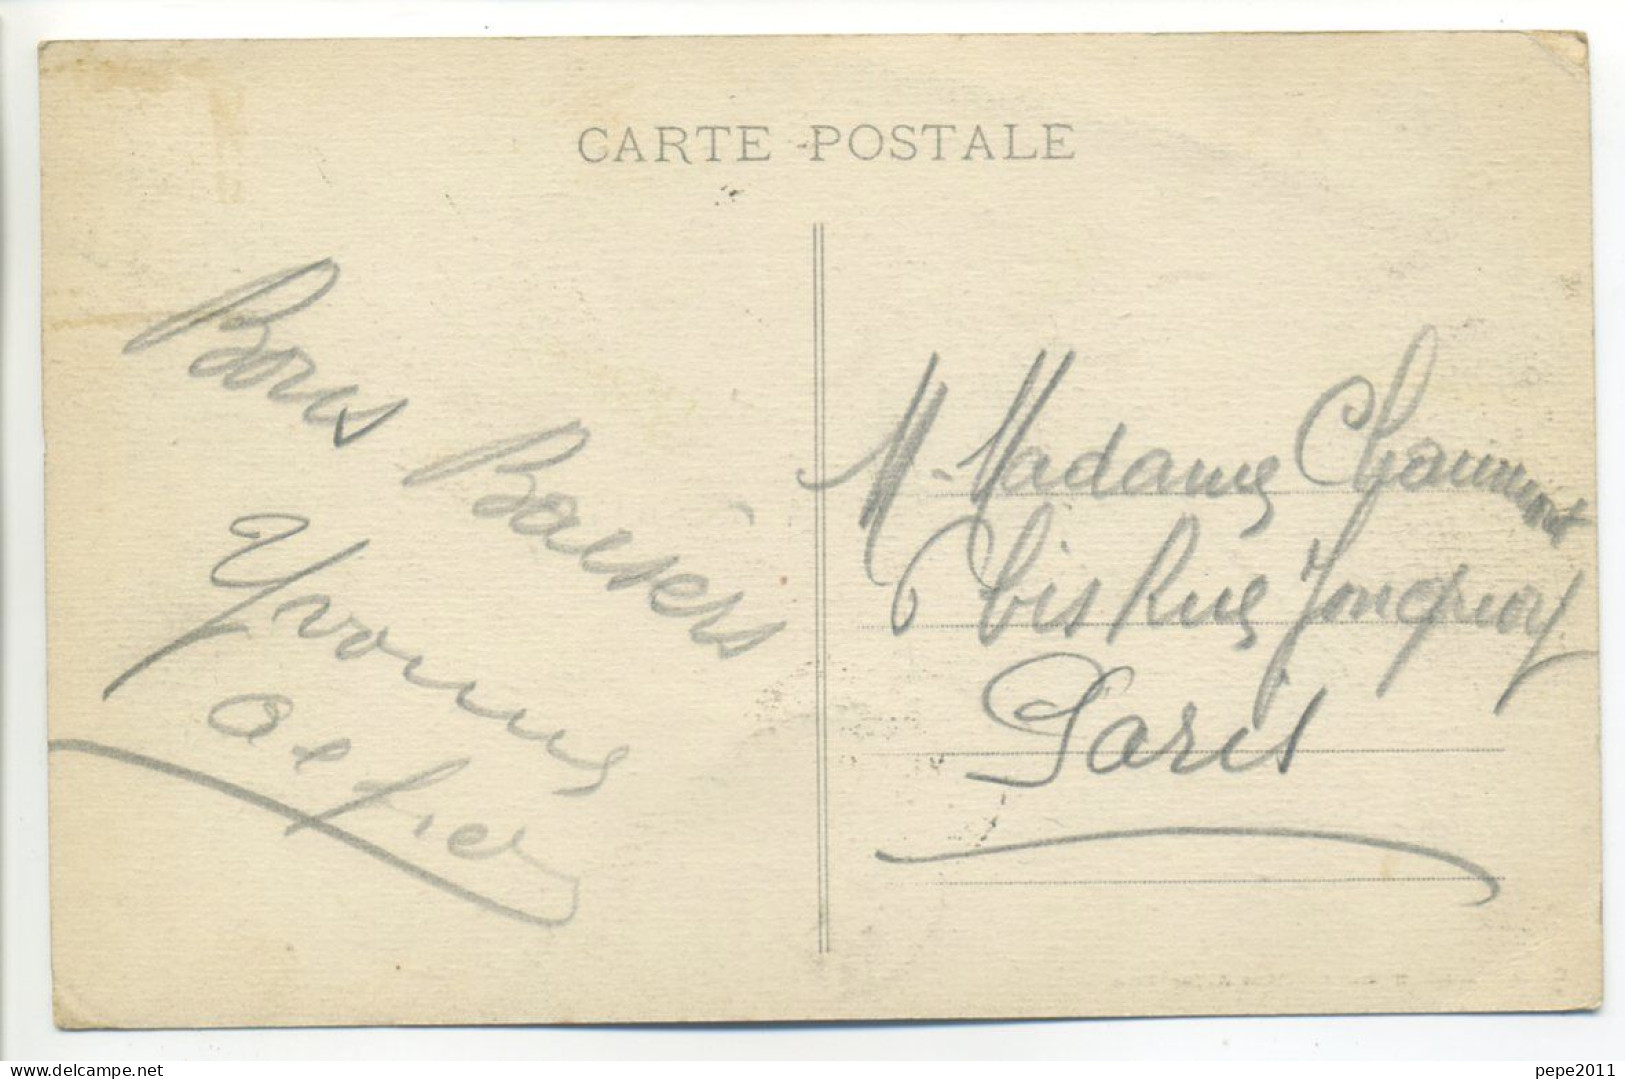 CARTE POSTALE
Bons Baisers
Yvonne
Alfred
M. Madame Chaumont
6 bis Rue Jonquoy
Paris
www.delcampe.net
pepe2011